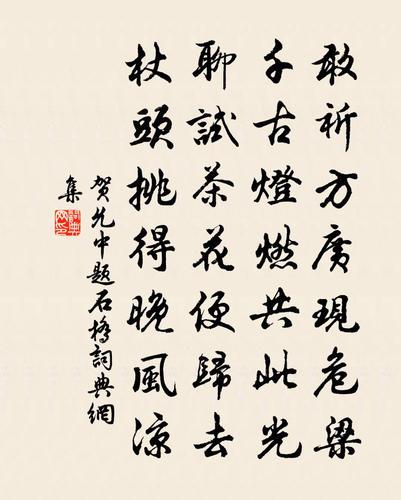 敢祈方廣現危梁
千古燈燃共此光
聊試茶花便歸去
杖頭挑得晚風涼
賀允中題石橋詞典網
集